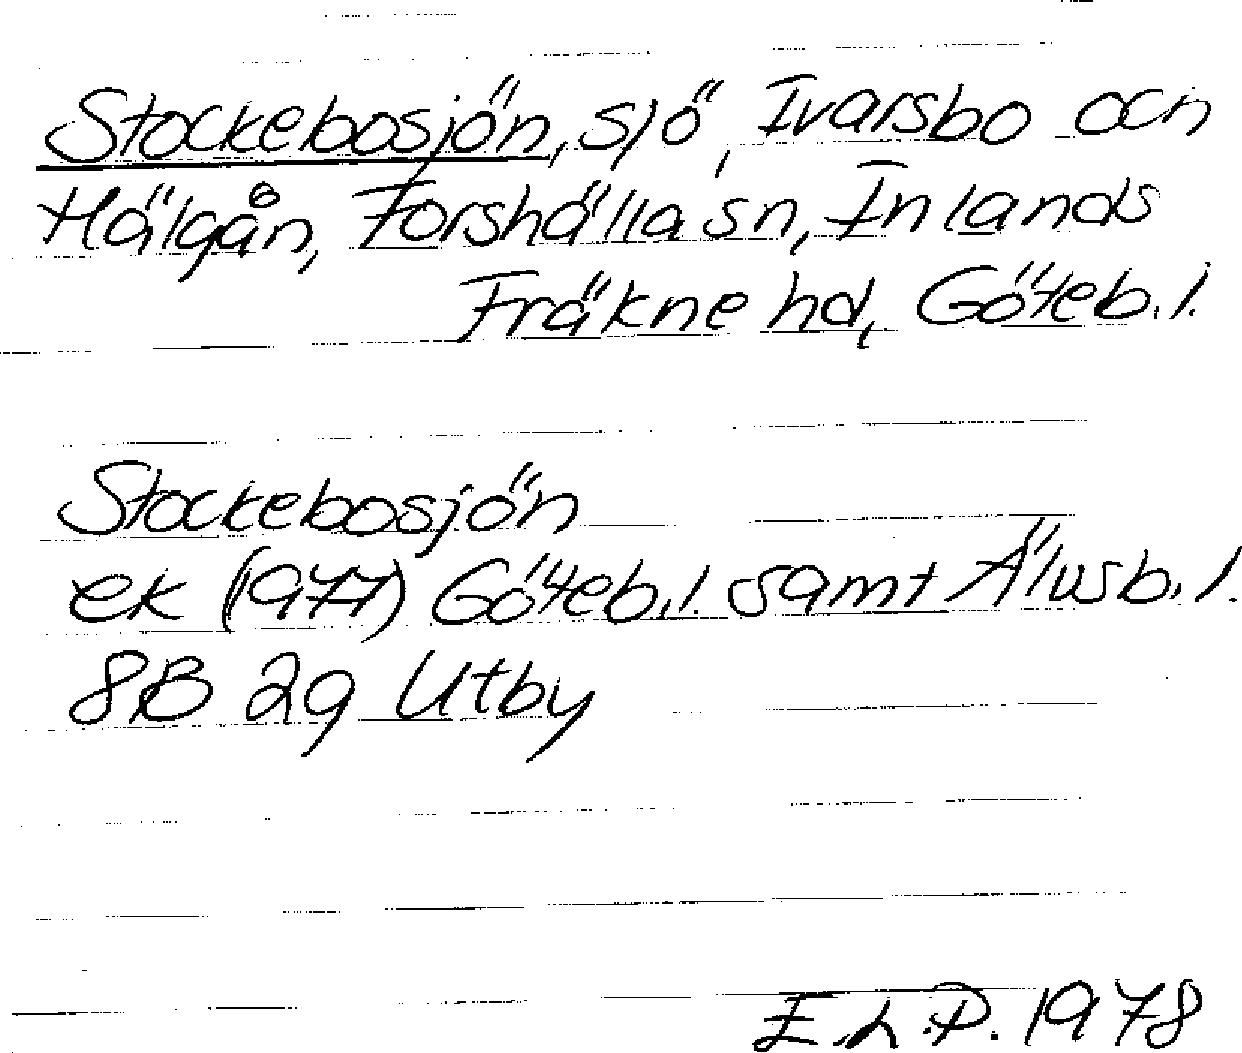 Stockebosjön, sjö, Ivarsbo och
Hälgån, Forshälla sn, Inlands
Fräkne hd, Göteb. l.
Stockebosjön
ek (1977) Göteb. l. samt Älvsb. l.
8B 2g Utby
E.L.P. 1978